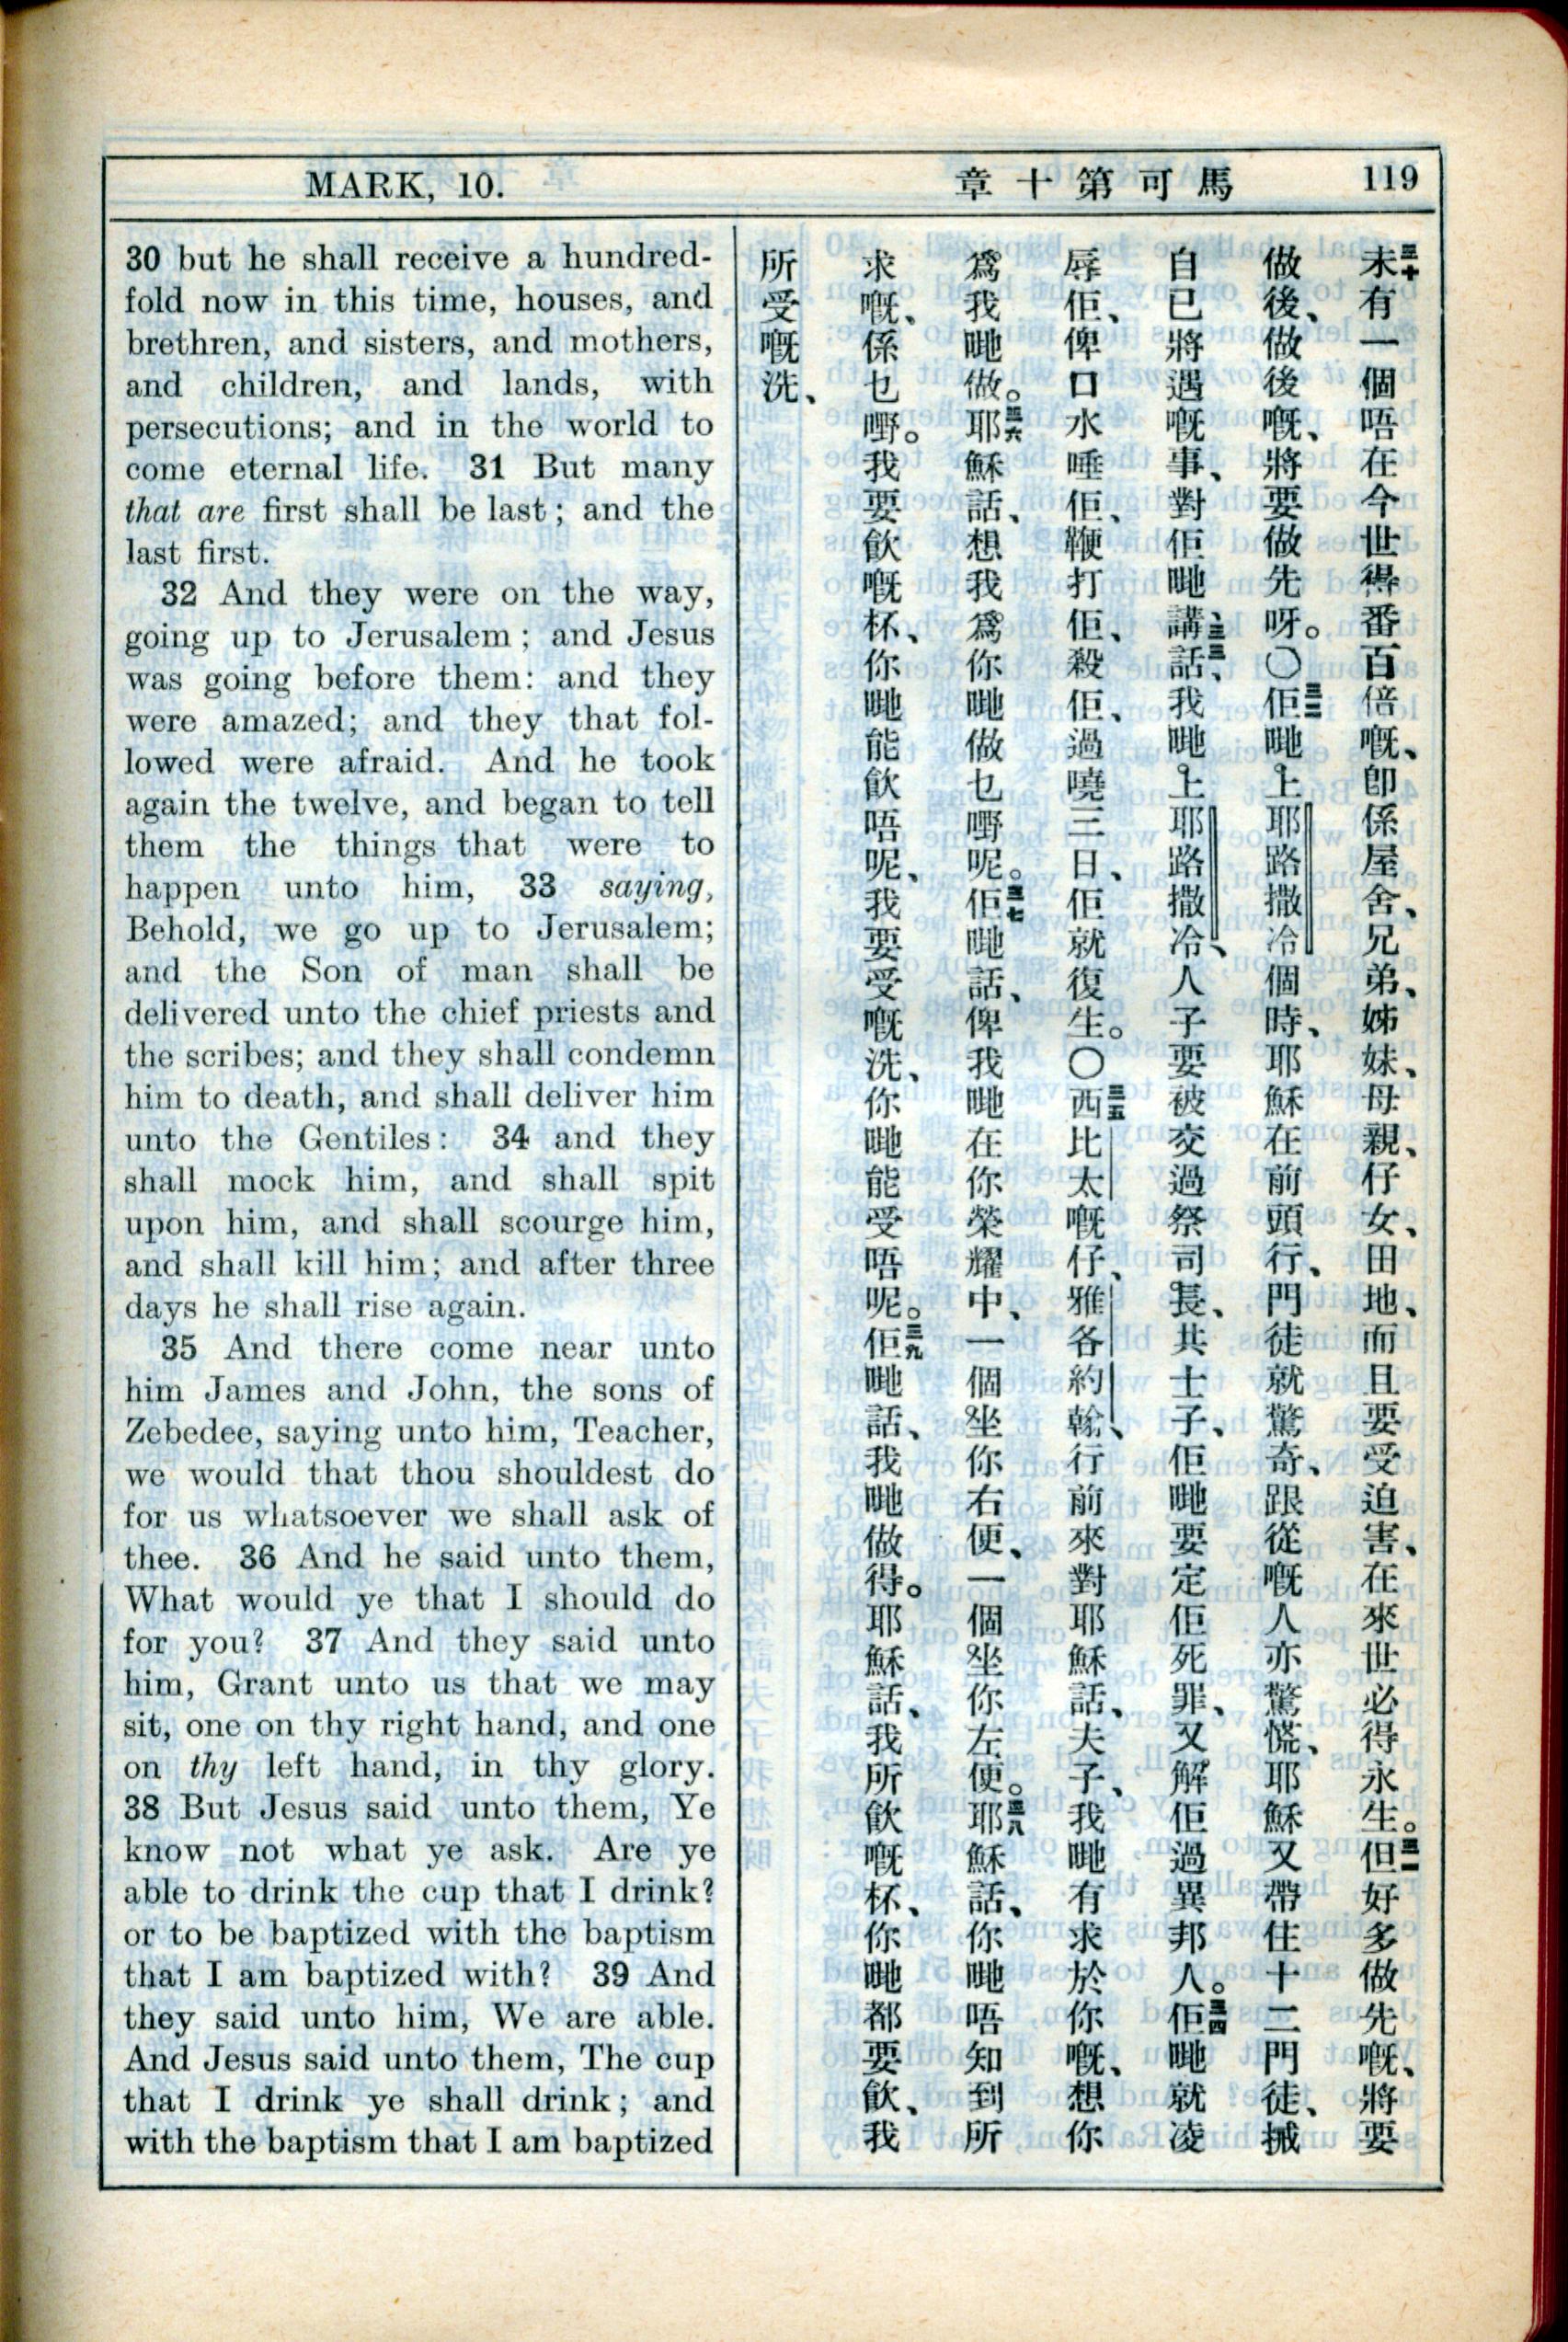 MARK, 10.
章十第可馬
119
30 but he shall receive a hundred-
fold now in this time, houses, and
brethren, and sisters, and mothers,
and children, and lands, with
persecutions; and in the world to
come eternal life. 31 But many
that are first shall be last; and the
last first.
32 And they were on the way,
going up to Jerusalem; and Jesus
was going before them: and they
were amazed; and they that fol-
lowed were afraid. And he took
again the twelve, and began to tell
them the things that were to
happen unto him, 33 saying,
Behold, we go up to Jerusalem;
and the Son of man shall be
delivered unto the chief priests and
the scribes; and they shall condemn
him to death, and shall deliver him
unto the Gentiles: 34 and they
shall mock him, and shall spit
upon him, and shall scourge him,
and shall kill him; and after three
days he shall rise again.
35 And there come near unto
him James and John, the sons of
Zebedee, saying unto him, Teacher,
we would that thou shouldest do
for us whatsoever we shall ask of
thee. 36 And he said unto them,
What would ye that I should do
for you? 37 And they said unto
him, Grant unto us that we may
sit, one on thy right hand, and one
on thy left hand, in thy glory.
38 But Jesus said unto them, Ye
know not what ye ask. Are ye
able to drink the cup that I drink?
or to be baptized with the baptism
that I am baptized with? 39 And
they said unto him, We are able.
And Jesus said unto them, The cup
that I drink ye shall drink; and
with the baptism that I am baptized
三十未有一個唔在今世得番百倍嘅、卽係屋舍、兄弟、姊妹、母親、仔女、田地、而且要受迫害、在來世必得永生。三一但好多做先嘅、將要
做後、做後嘅、將要做先呀。〇三二佢哋上耶路撒冷個時、耶穌在前頭行、門徒就驚奇、跟從嘅人亦驚慌、耶穌又帶住十二門徒、摵
自己將遇嘅事、對佢哋講、三三話、我哋上耶路撒冷、人子要被交過祭司長、共士子、佢哋要定佢死罪、又解佢過異邦人。三四佢哋就凌
辱佢、俾口水唾佢、鞭打佢、殺佢、過曉三日、佢就復生。〇三五西比太嘅仔、雅各約翰、行前來對耶穌話、夫子、我哋有求於你嘅、想你
爲我哋做。三六耶穌話、想我爲你哋做乜嘢呢。三七佢哋話、俾我哋在你榮耀中、一個坐你右便、一個坐你左便。三八耶穌話、你哋唔知到所
求嘅、係乜嘢。我要飮嘅杯、你哋能飮唔呢、我要受嘅洗、你哋能受唔呢。三九佢哋話、我哋做得。耶穌話、我所飮嘅杯、你哋都要飮、我
所受嘅洗、